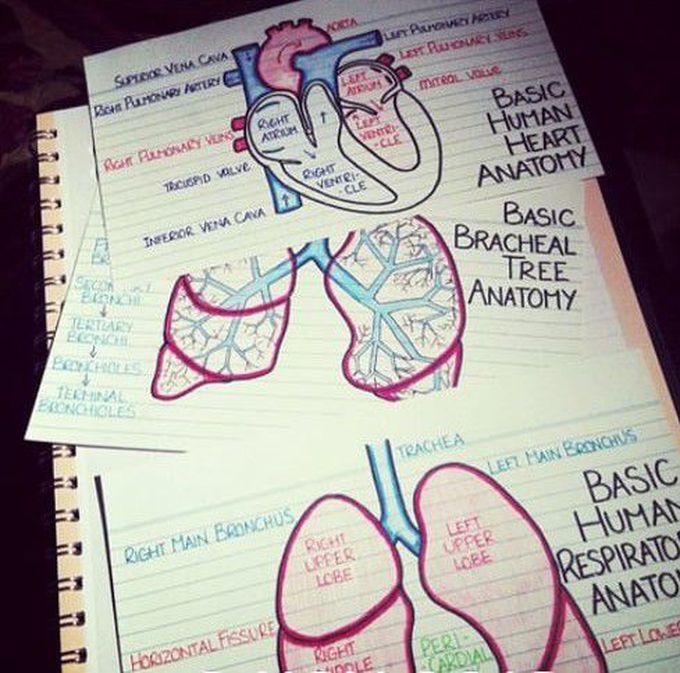 AORTA
LEFT PULMONARY ARTERY
SUPERIOR VENA CAVA
LEFT PULMONARY VEINS
RIGHT PULMONARY ARTERY
LEFT
ATRIUM
MITRAL VALVE
RIGHT
ATRIUM
LEFT
VENTRI-
-CLE
RIGHT PULMONARY VEINS
TRICUSPID VALVE
RIGHT
VENTRI-
-CLE
INFERIOR VENA CAVA
BASIC
HUMAN
HEART
ANATOMY
BASIC
BRACHEAL
TREE
ANATOMY
BRONCHI
TERTIARY
BRONCHI
BRONCHIOLES
TERMINAL
BRONCHIOLES
TRACHEA
LEFT MAIN BRONCHUS
RIGHT MAIN BRONCHUS
RIGHT
UPPER
LOBE
LEFT
UPPER
LOBE
BASIC
HUMAN
RESPIRATO
ANATO
HORIZONTAL FISSURE
RIGHT
PERI-
-CARDIAL
LEFT